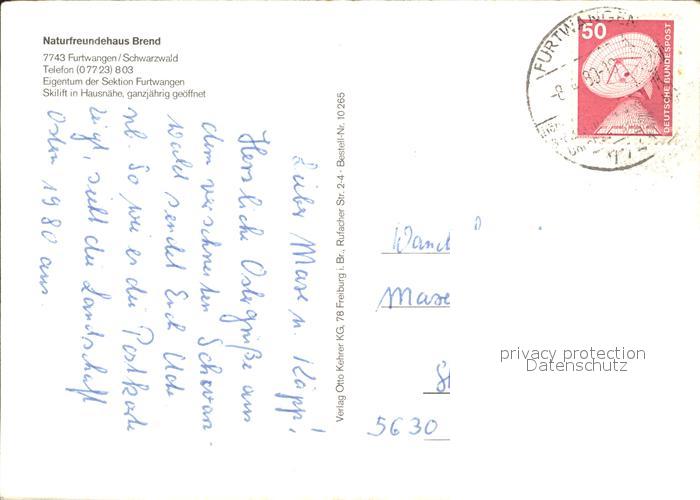 Naturfreundehaus Brend
7743 Furtwangen/Schwarzwald
Telefon (07723) 803
Eigentum der Sektion Furtwangen
Skilift in Hausnähe, ganzjährig geöffnet
Liebe Maxe u. Käpp!
Herzliche Ostergrüße aus
dem verschneiten Schwarz-
wald sendet Euch
So wie es die Postkarte
zeigt, sieht die Landschaft
Ostern 1980 aus.
Verlag Otto Kehrer KG, 78 Freiburg i. Br., Rufacher Str. 2-4 · Bestell-Nr. 10 265
FURTWANGEN
50
DEUTSCHE BUNDESPOST
5630
privacy protection
Datenschutz